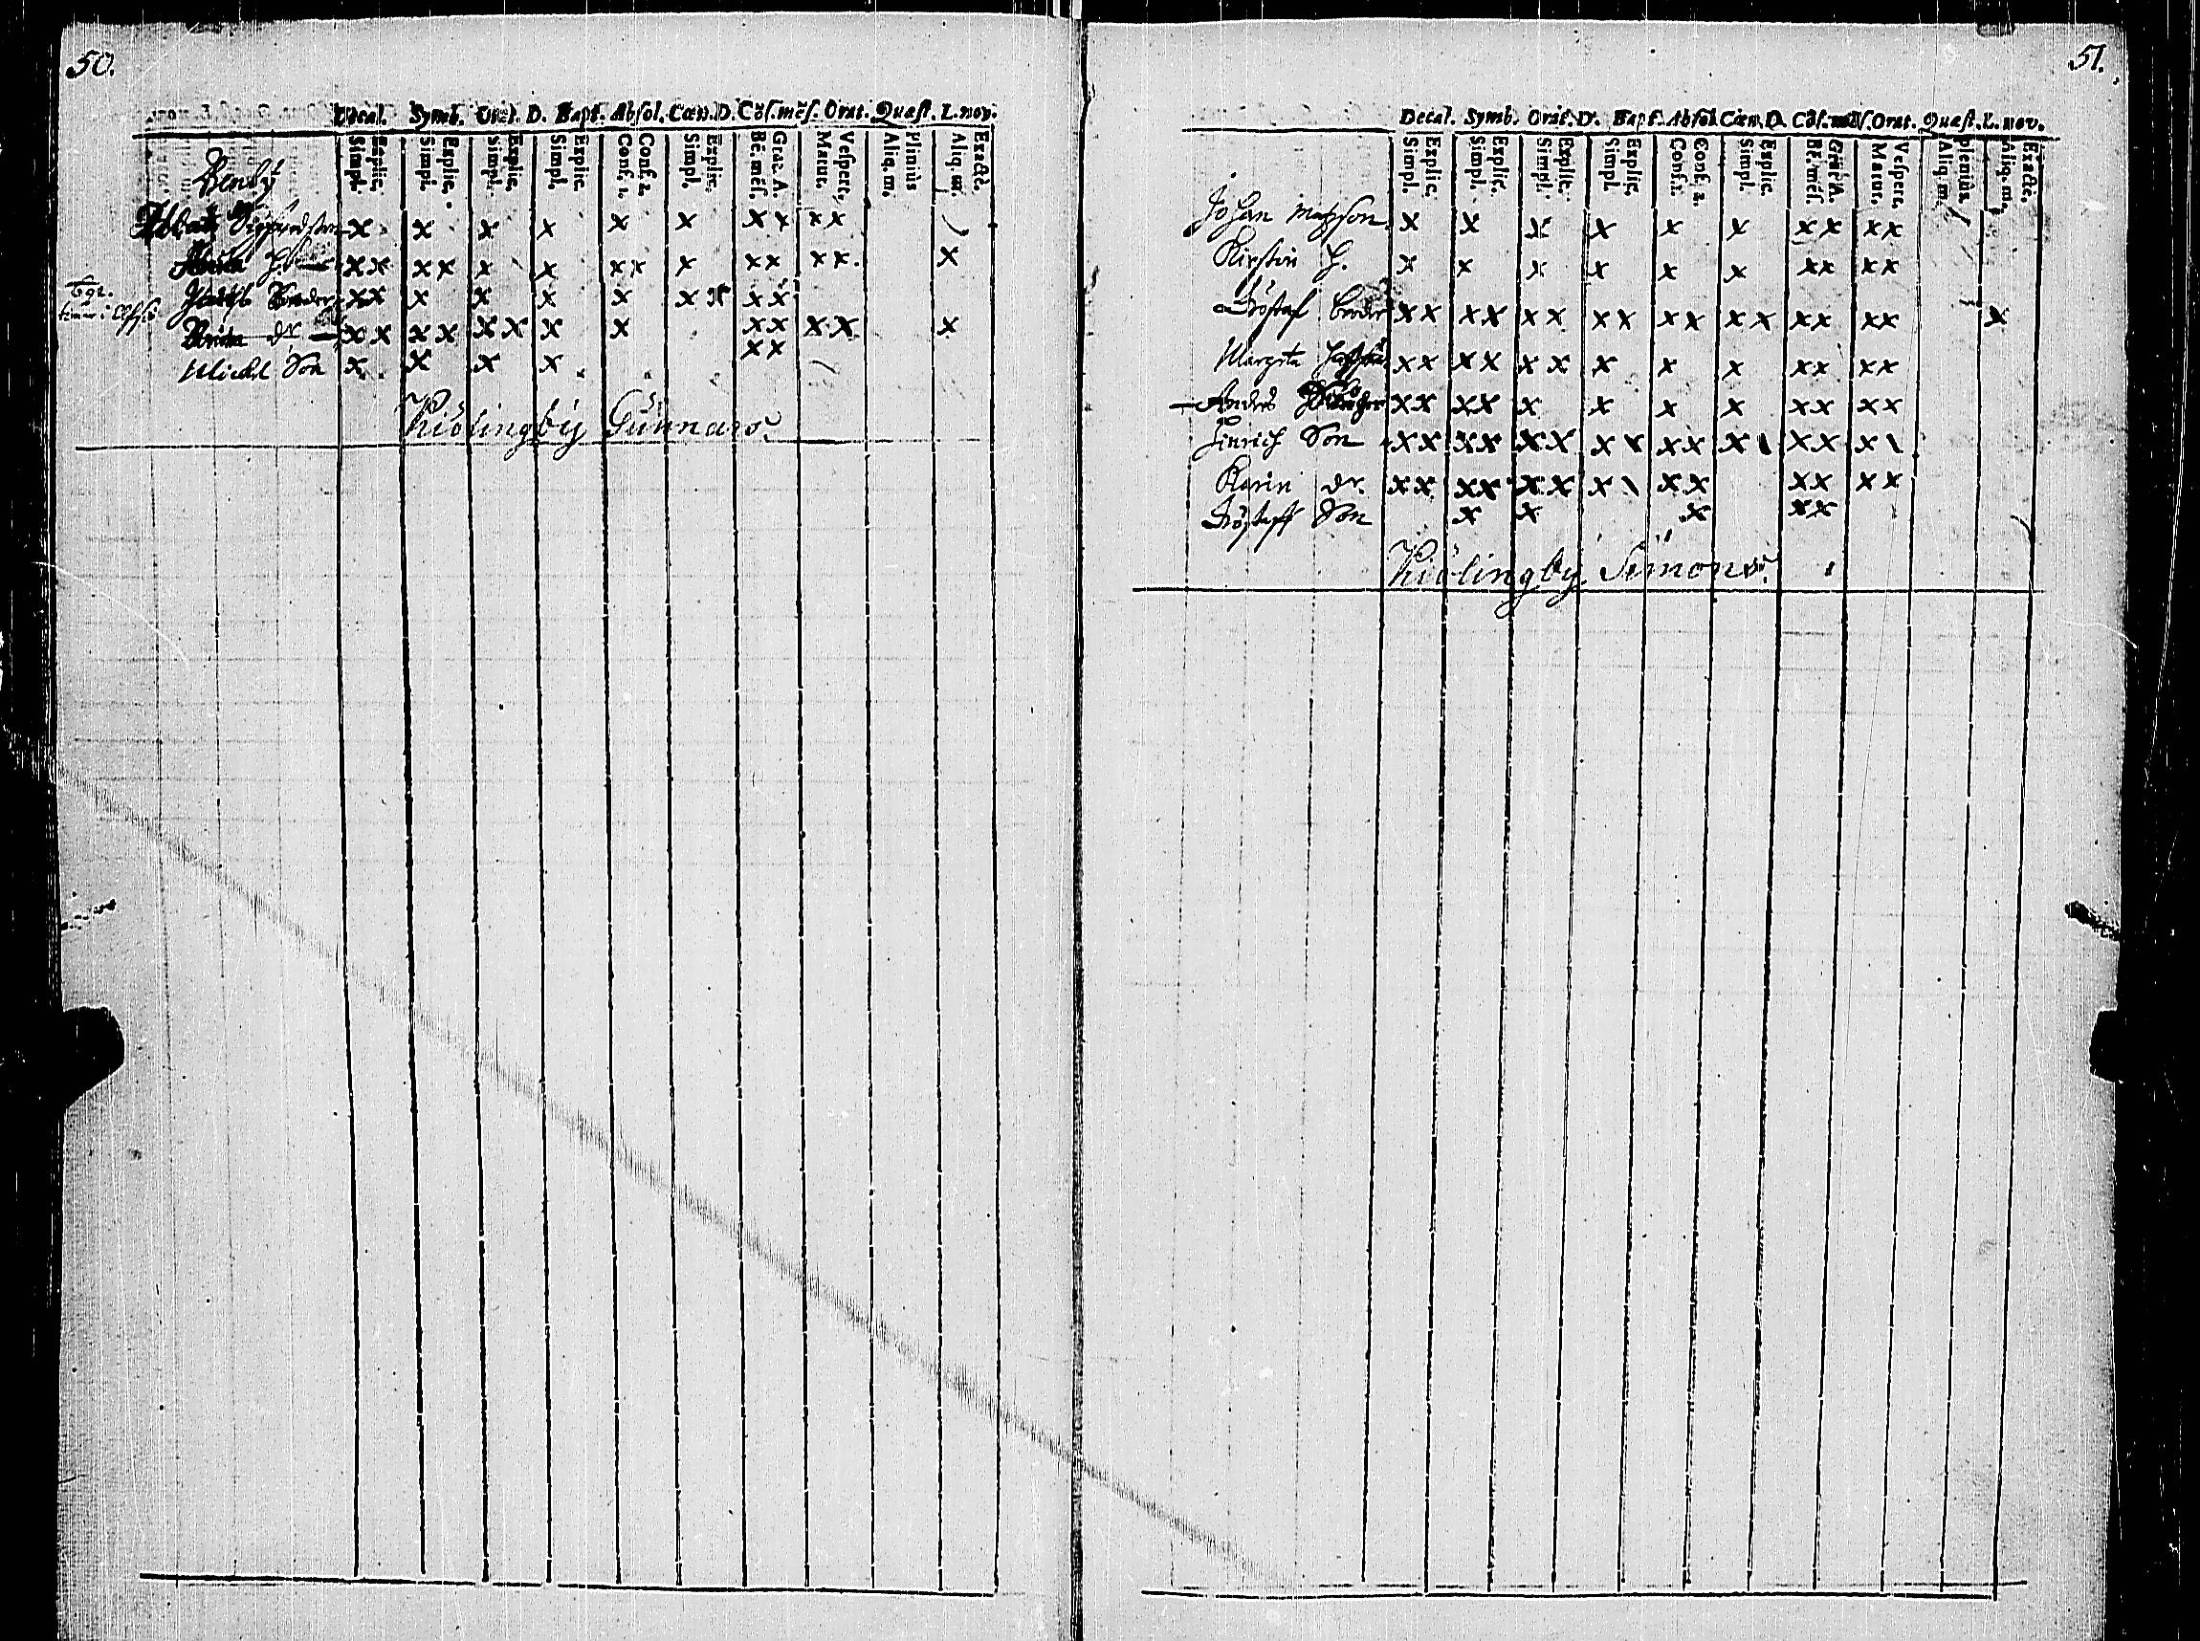 50.
Decal. Symb. Orat. D. Bapt. Absol. Cœn. D. Cōs. mēs. Orat. Quæst. L. nov.
Simpl. Explic. Simpl. Explic. Simpl. Explic. Simpl. Explic. Conf. 1. Conf. 2. Simpl. Explic. Bē. mēs. Grat. A. Matut. Vespert. Aliq. m. Pleniùs Aliq. m. Exactè.
x x x x x x x x x x
x x x x x x x x x x x x x x x
x x x x x x x x x x
dr x x x x x x x x x x x x x
Michel Son x x x x x x
Kiölingby Gunnars
51.
Decal. Symb. Orat. D. Bapt. Absol. Cœn. D. Cōs. mēs. Orat. Quæst. L. nov.
Simpl. Explic. Simpl. Explic. Simpl. Explic. Simpl. Explic. Conf. 1. Conf. 2. Simpl. Explic. Bē. mēs. Grat. A. Matut. Vespert. Aliq. m. pleniùs Aliq. m. Exactè.
Johan Matzson x x x x x x x x x x
Kirstin H. x x x x x x x x x x
Göstaf x x x x x x x x x x x x x x x x x
Margeta x x x x x x x x x x x x x
Anders x x x x x x x x x x x x
Hinrich Son x x x x x x x x x x x x x x
Karin dr. x x x x x x x x x x x x x
Göstaff Son x x x x x
Kiölingby Simons